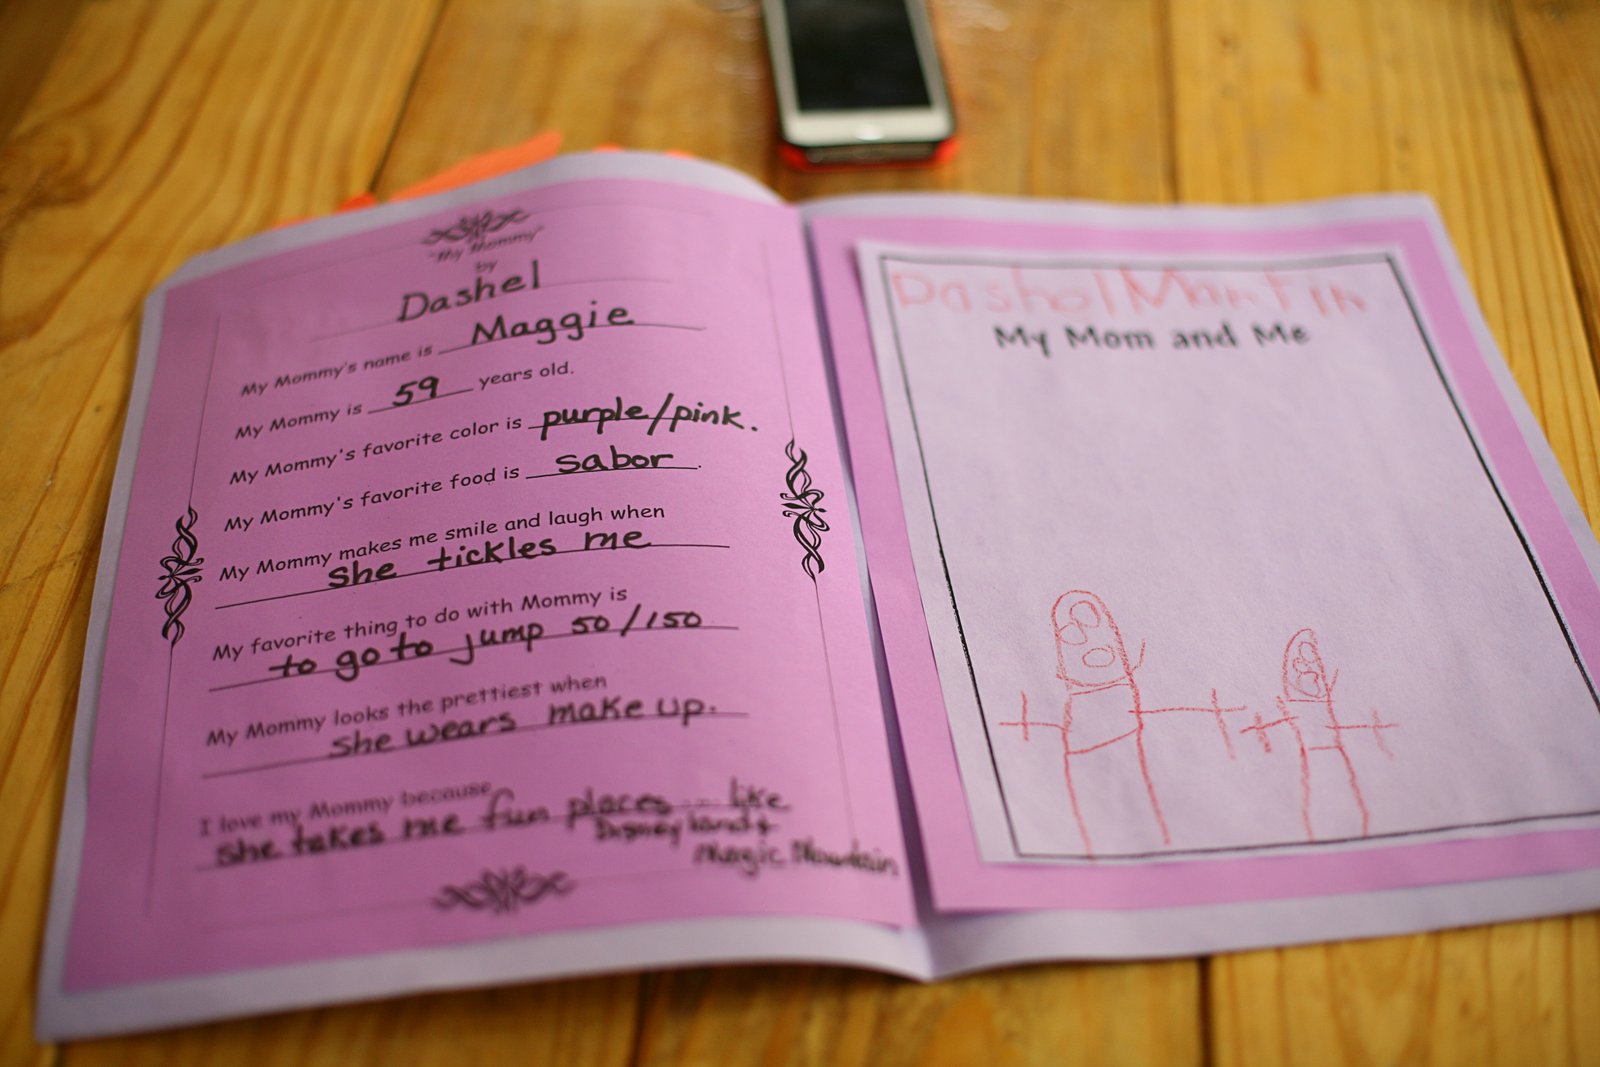 "My Mommy"
by
Dashel
My Mommy's name is Maggie
My Mommy is 59 years old.
My Mommy's favorite color is purple/pink.
My Mommy's favorite food is sabor.
My Mommy makes me smile and laugh when
she tickles me
My favorite thing to do with Mommy is
to go to jump 50/150
My Mommy looks the prettiest when
she wears make up.
I love my Mommy because
she takes me fun places... like
Disneyland &
Magic Mountain
Dashel Martin
My Mom and Me